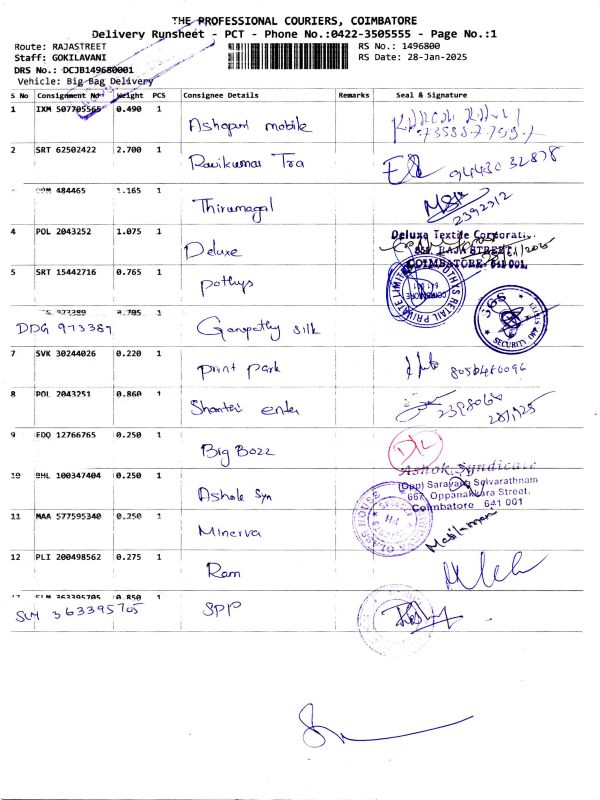 THE PROFESSIONAL COURIERS, COIMBATORE
Delivery Runsheet - PCT - Phone No.:0422-3505555 - Page No.:1
Route: RAJASTREET
RS No.: 1496800
Staff: GOKILAVANI
RS Date: 28-Jan-2025
DRS No.: DCJB149680001
Vehicle: Big Bag Delivery
S No Consignment No Weight PCS Consignee Details Remarks Seal & Signature
1 IXM 507705565 0.490 1
Ashapuri mobile
2 SRT 62502422 2.700 1
Ravikumar Tra
94430 32878
484465 1.165 1
Thirumagal
2392312
4 POL 2043252 1.075 1
Deluxe
Deluxe Textile Corporation
RAJA STREET
COIMBATORE- 641 001.
5 SRT 15442716 0.765 1
pothys
POTHYS RETAIL PRIVATE LIMITED
COIMBATORE
641 001
973389 3.705 1
DDG 973389
Ganpathy silk
SECURITY
7 SVK 30244026 0.220 1
print park
8056466096
8 POL 2043251 0.860 1
Shanthi enter
28/1/25
9 EDQ 12766765 0.250 1
Big Bozz
D/L
10 BHL 100347404 0.250 1
Ashok Syn
Ashok Syndicate
(Opp) Saravana Selvarathnam
667, Oppanakkara Street,
Coimbatore 641 001
11 MAA 577595340 0.250 1
Minerva
GLASS HOUSE
Manikaman
12 PLI 200498562 0.275 1
Ram
SLM 363395705 0.850 1
SLM 363395705
SPP